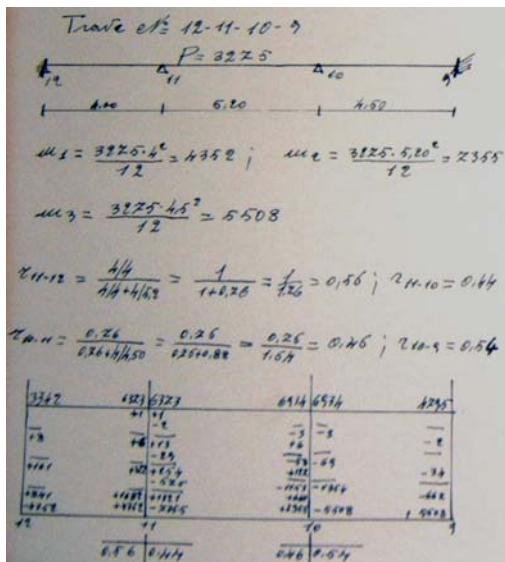 Trave N= 12-11-10-9
P= 3275
12 11 10 9
4.00 5,20 4,50
m1 = 3275·4² / 12 = 4352 ; m2 = 3275·5,20² / 12 = 7355
m3 = 3275·4,5² / 12 = 5508
r11-12 = 4/4 / 4/4+4/5,2 = 1 / 1+0,76 = 1 / 1,76 = 0,56 ; r11-10 = 0,44
r10-11 = 0,76 / 0,76+4/4,50 = 0,76 / 0,76+0,88 = 0,76 / 1,64 = 0,46 ; r10-9 = 0,54
3342 6323 6323 6934 6934 4795
+1 +1
-2
+3 +6 -3 -3
+6 -2
-29
+254 -69
-34
-1354
-662
-7355 -5508 5508
12 11 10 9
0,56 0,44 0,46 0,54